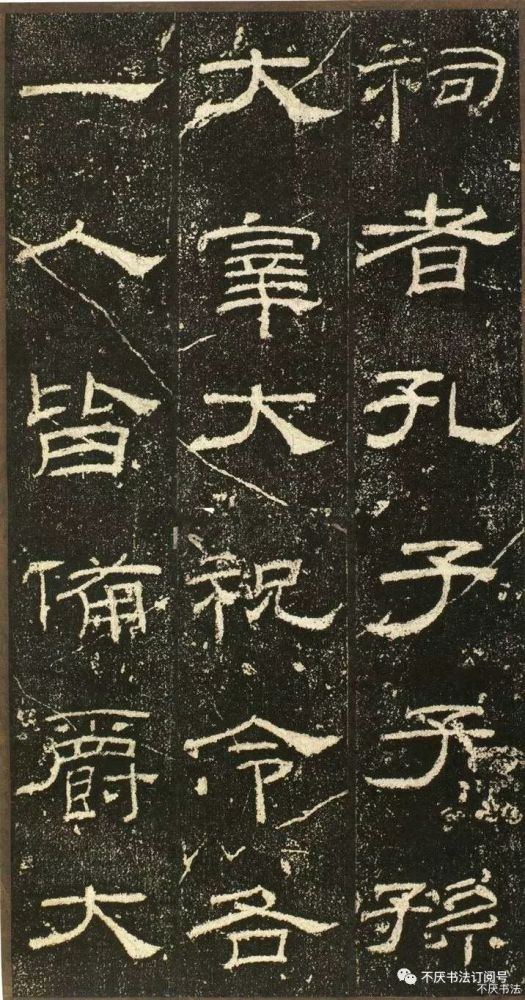 祠者孔子子孫
大宰大祝令各
一人皆備爵大
不厌书法订阅号
不厌书法